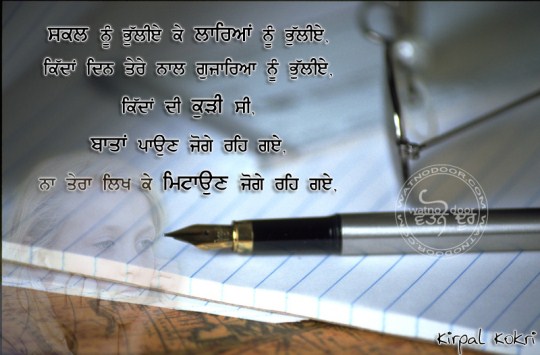 ਸ਼ਕਲ ਨੂੰ ਭੁੱਲੀਏ ਕੇ ਲਾਰਿਆਂ ਨੂੰ ਭੁੱਲੀਏ,
ਕਿੱਦਾਂ ਦਿਨ ਤੇਰੇ ਨਾਲ ਗੁਜ਼ਾਰਿਆ ਨੂੰ ਭੁੱਲੀਏ,
ਕਿੱਦਾਂ ਦੀ ਕੁੜੀ ਸੀ,
ਬਾਤਾਂ ਪਾਉਣ ਜੋਗੇ ਰਹਿ ਗਏ,
ਨਾ ਤੇਰਾ ਲਿਖ ਕੇ ਮਿਟਾਉਣ ਜੋਗੇ ਰਹਿ ਗਏ,
WATNODOOR.COM
watno door
ਵਤਨੋਂ ਦੂਰ
WATNODOOR.COM
Kirpal Kokri